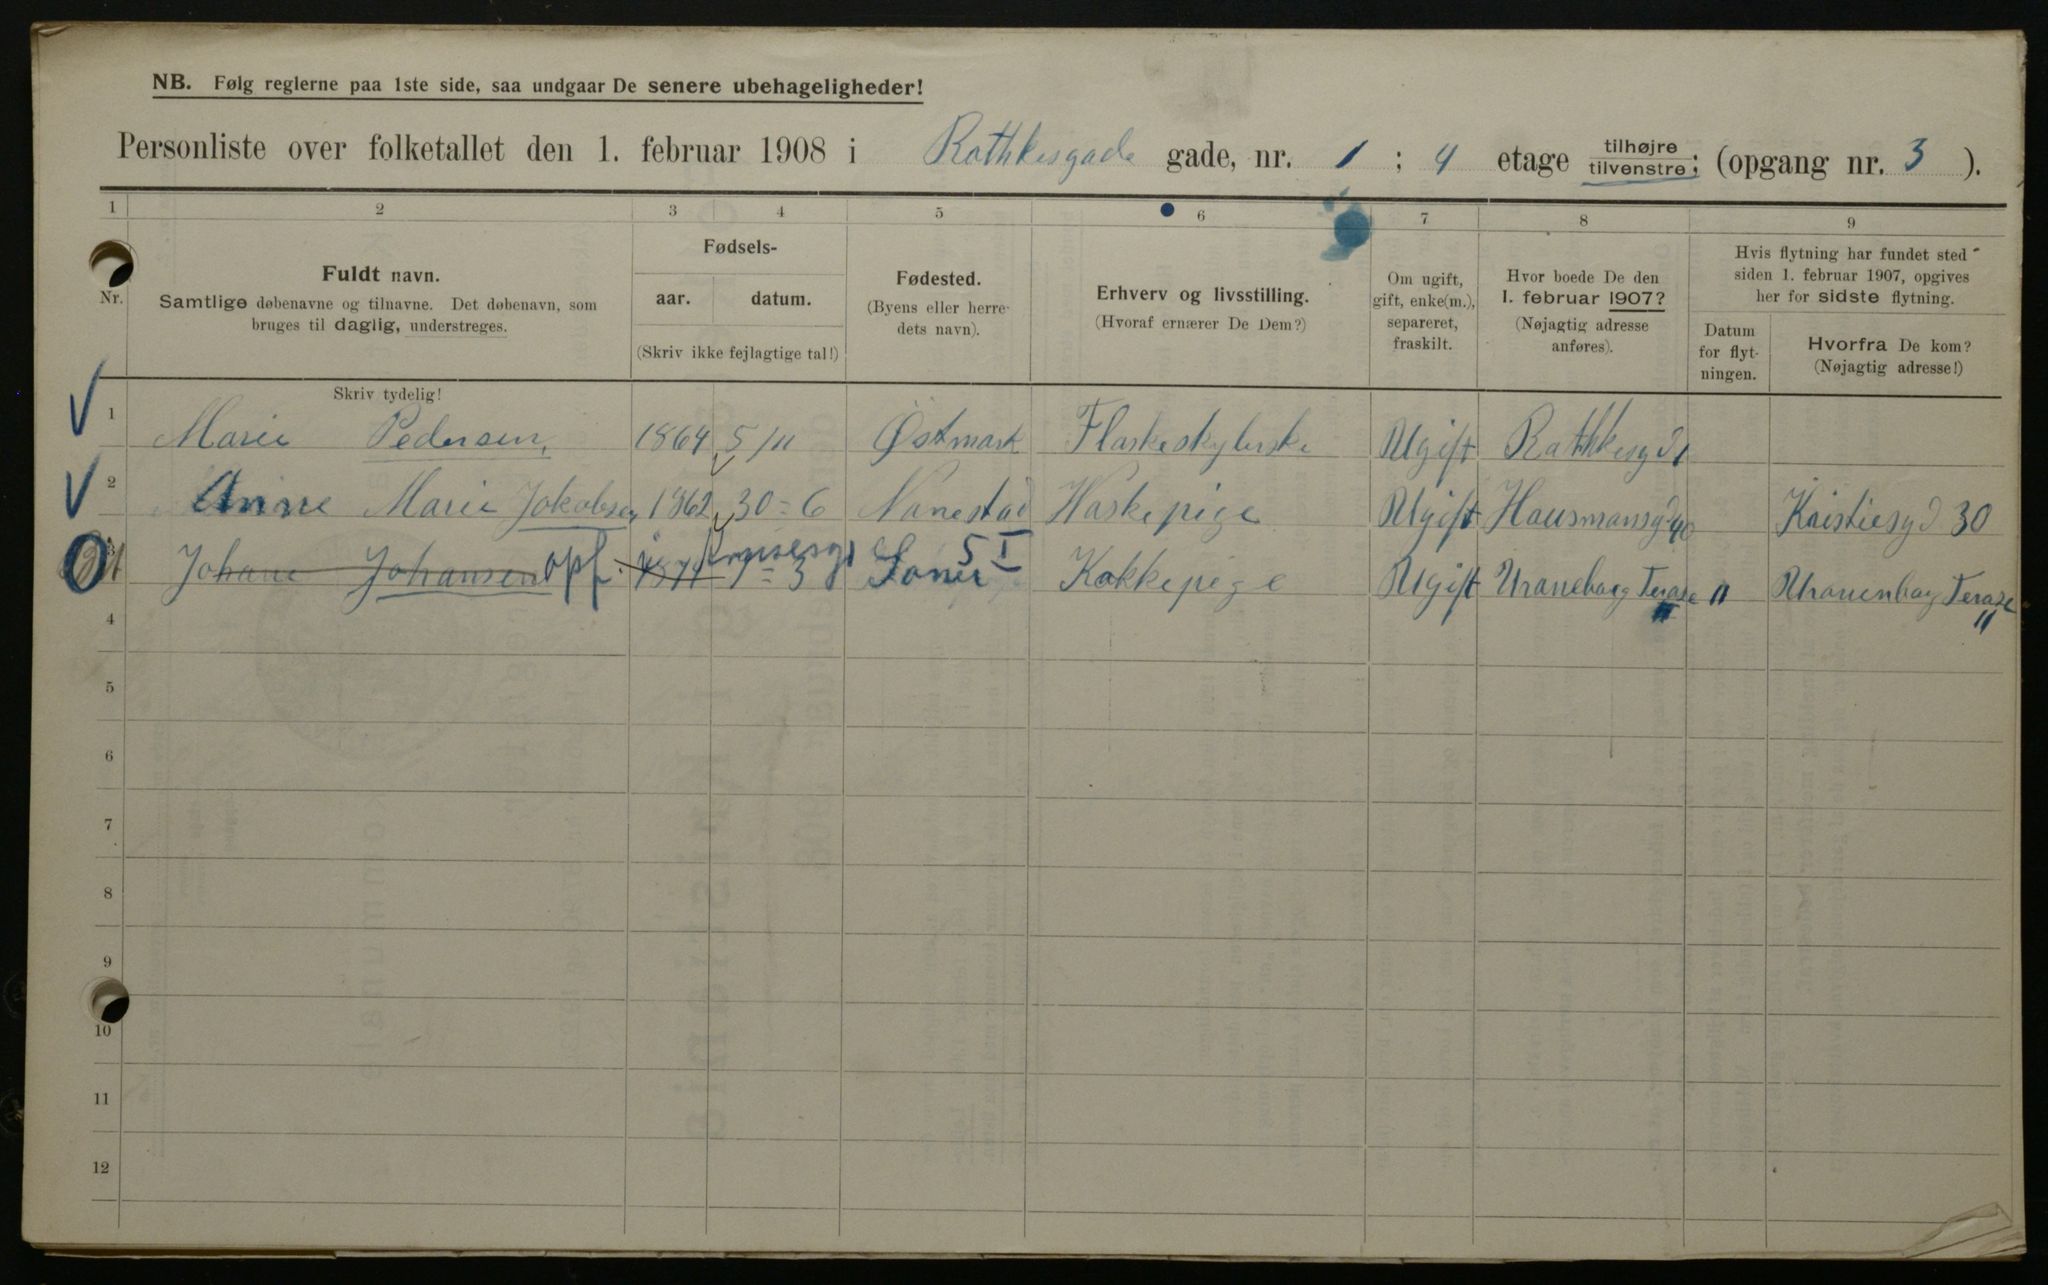 NB. Følg reglerne paa 1ste side, saa undgaar De senere ubehageligheder!
Personliste over folketallet den 1. februar 1908 i Rathkesgade gade, nr. 1 ; 4 etage tilhøjre tilvenstre; (opgang nr. 3 ).
1 2 3 4 5 6 7 8 9
Nr.
Fuldt navn.
Samtlige døbenavne og tilnavne. Det døbenavn, som
bruges til daglig, understreges.
Fødsels-
aar. datum.
(Skriv ikke fejlagtige tal!)
Fødested.
(Byens eller herre-
dets navn).
Erhverv og livsstilling.
(Hvoraf ernærer De Dem?)
Om ugift,
gift, enke(m.),
separeret,
fraskilt.
Hvor boede De den
1. februar 1907?
(Nøjagtig adresse
anføres).
Hvis flytning har fundet sted
siden 1. februar 1907, opgives
her for sidste flytning.
Datum
for flyt-
ningen.
Hvorfra De kom?
(Nøjagtig adresse!)
Skriv tydelig!
1 Marie Pedersen, 1864 5/11 Østmark Flaskeskylerske Ugift Rathkesgd 1
2 Anne Marie Jokobsen 1862 30=6 Nanestad Waskepige Ugift Hausmansgd 40 Kristiesgd 30
3 Johane Johansen opf. 1871 1=3 5 I Soner Kokkepige Ugift Uraneborg Terase 11 Uranenborg Terase 11
4
5
6
7
8
9
10
11
12